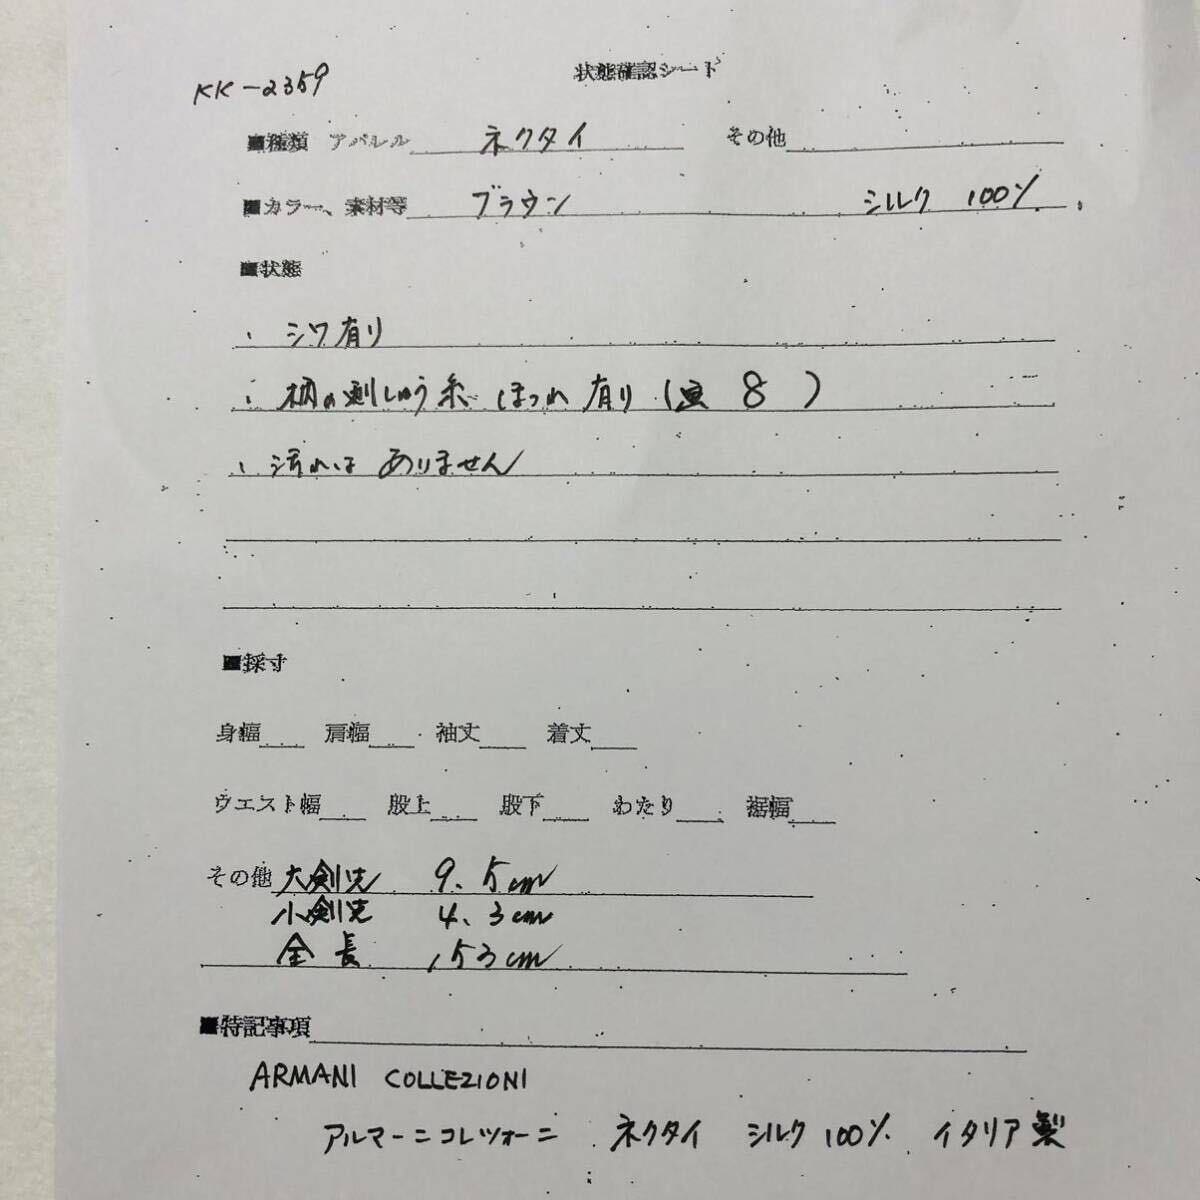 状態確認シート
KK-2359
■種類 アパレル ネクタイ その他
■カラー、素材等 ブラウン シルク 100%
■状態
・シワ有り
・柄の刺しゅう糸 ほつれ有り(画 8 )
・汚れは ありません
■採寸
身幅 肩幅 袖丈 着丈
ウエスト幅 股上 股下 わたり 裾幅
その他 大剣先 9.5cm
小剣先 4.3cm
全長 153cm
■特記事項
ARMANI COLLEZIONI
アルマーニコレツォーニ ネクタイ シルク 100% イタリア製